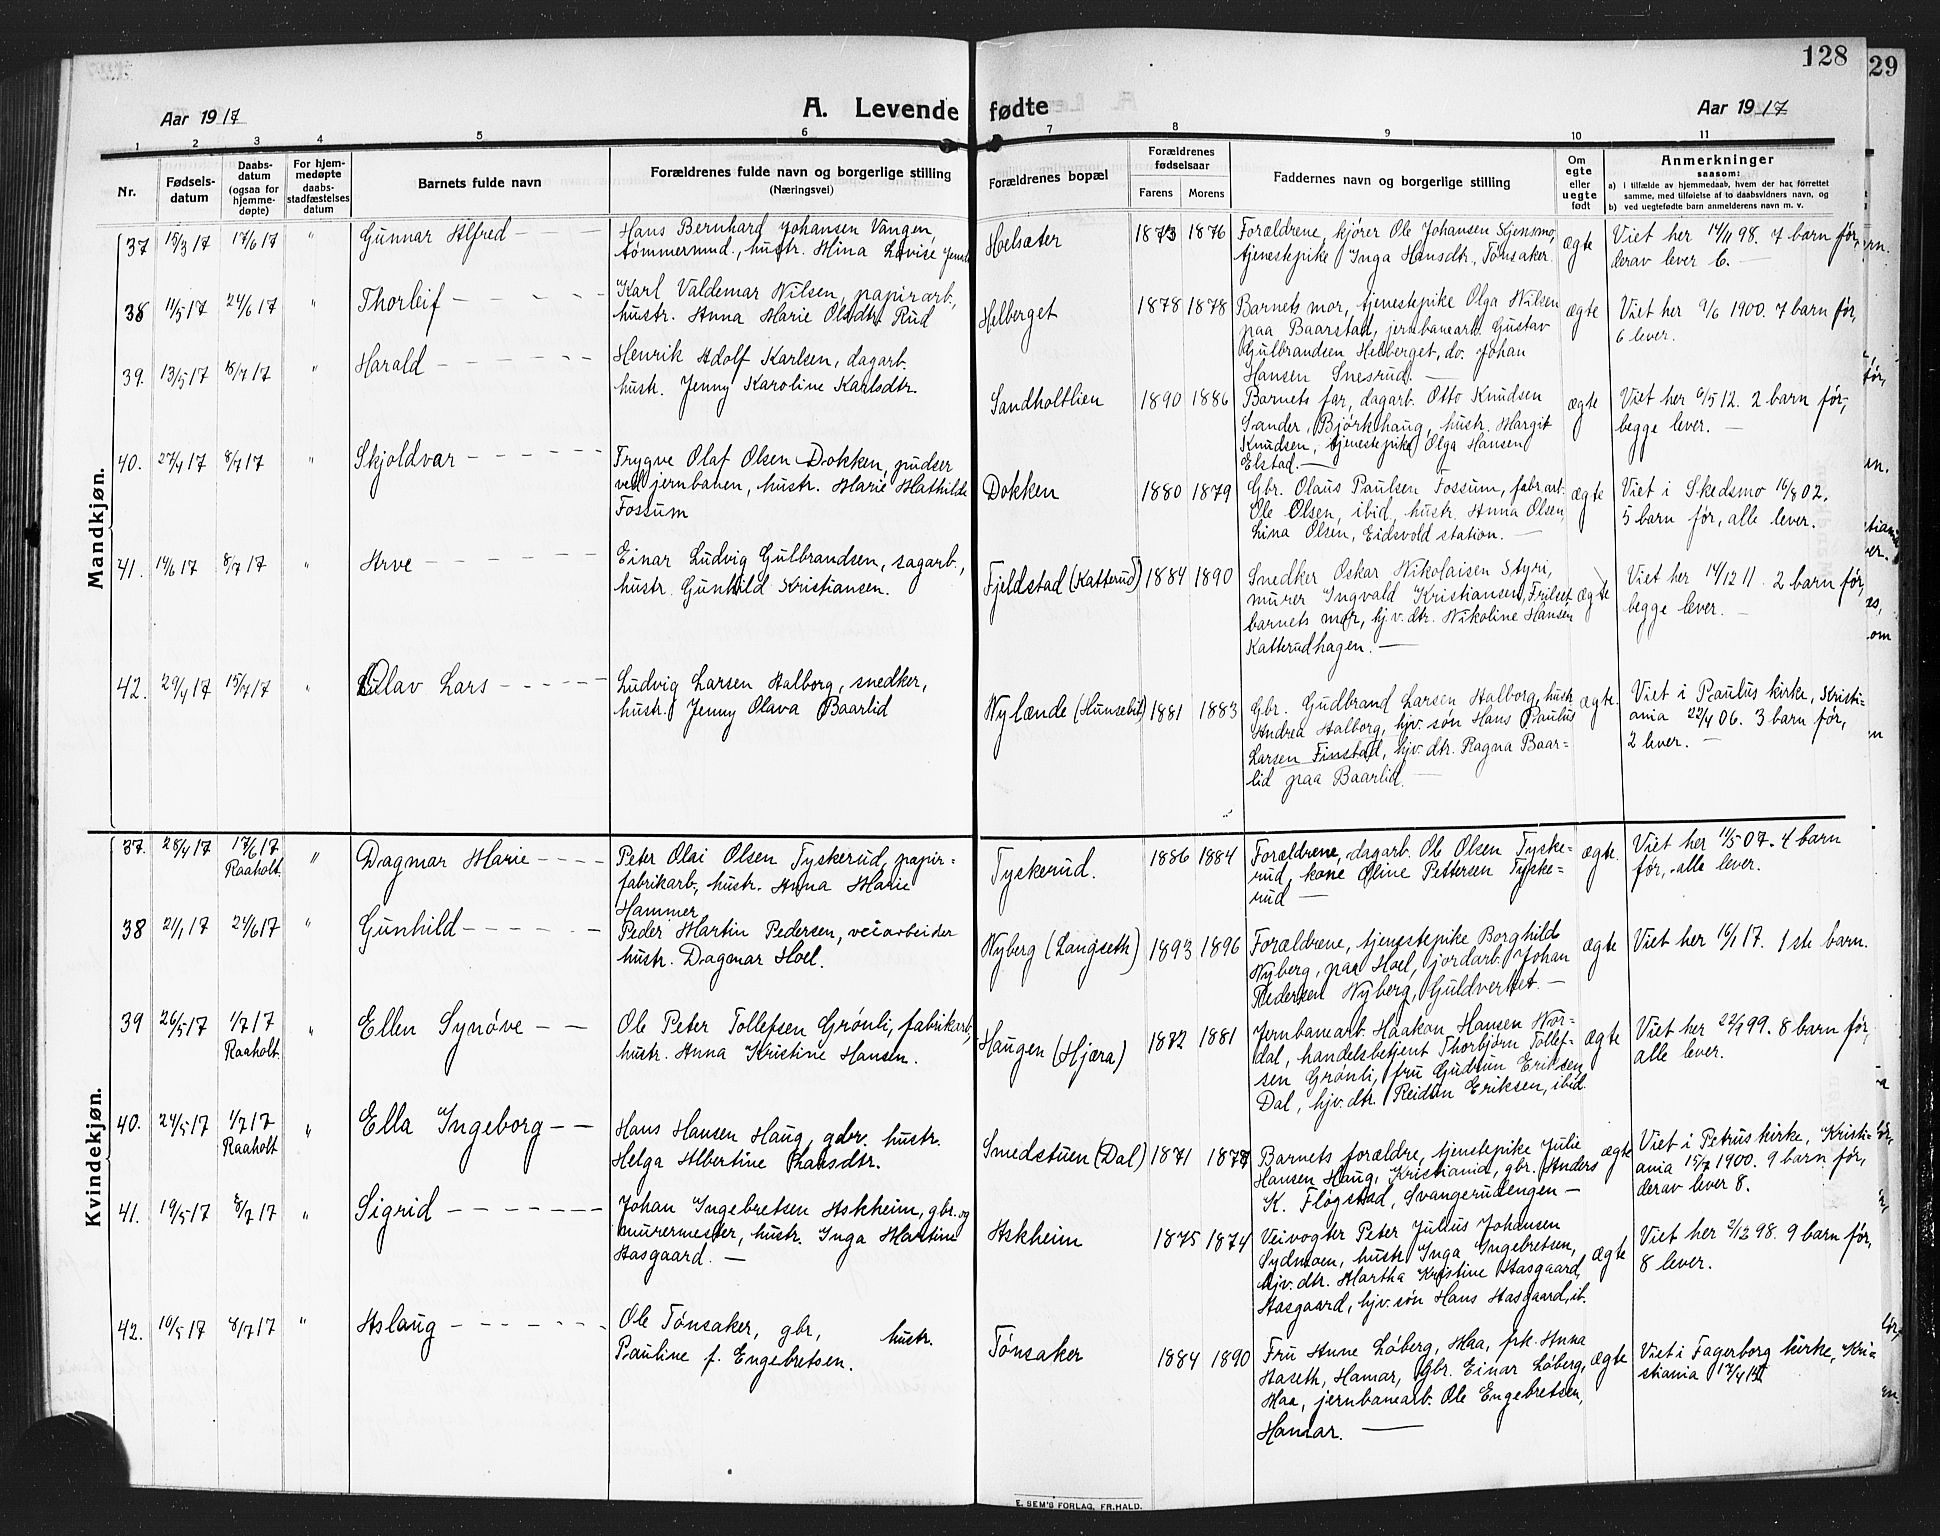 128
29
Aar 1917
A. Levende fødte
Aar 1917
1 2 3 4 5 6 7 8 9 10 11
Nr.
Fødsels-
datum
Daabs-
datum
(ogsaa for
hjemme-
døpte)
For hjem-
medøpte
daabs-
stadfæstelses
datum
Barnets fulde navn
Forældrenes fulde navn og borgerlige stilling
(Næringsvei)
Forældrenes bopæl
Forældrenes
fødselsaar
Farens Morens
Faddernes navn og borgerlige stilling
Om
egte
eller
uegte
født
Anmerkninger
saasom:
a) i tilfælde av hjemmedaab, hvem der har forrettet
samme, med tilføielse af to daabsvidners navn, og
b) ved uegtefødte barn anmelderens navn m. v.
Mandkjøn.
37 15/3 17 17/6 17 " Gunnar Alfred
Hans Bernhard Johansen Vangen,
tømmermd., hustr. Mina Lovise
Hoelsæter
1873 1876
Forældrene, kjører Ole Johansen
tjenestepike Inga Hansdtr. Tønsaker
ægte
Viet her 14/11 98. 7 barn før,
derav lever 6.
38 11/5 17 24/6 17 " Thorleif
Karl Valdemar Nilsen, papirarb.,
hustr. Anna Marie Olsdtr. Rud
Helberget
1878 1878
Barnets mor, tjenestepike Olga Nilsen
paa Baarstad, jernbanearb. Gustav
Gulbrandsen Helberget, do. Johan
Hansen Snesrud.
ægte
Viet her 9/6 1900. 7 barn før,
6 lever.
39. 13/5 17 15/7 17 " Harald
Henrik Adolf Karlsen, dagarb.
hustr. Jenny Karoline Karlsdtr.
Sandholtlien
1890 1886
Barnets far, dagarb. Otto Knudsen
Sander, Bjørkhaug, hustr. Margit
Knudsen, tjenestepike Olga Hansen
Elstad.
ægte
Viet her 6/5 12. 2 barn før,
begge lever.
40. 27/4 17 8/7 17 " Skjoldvar
Trygve Olaf Olsen Dokken, pudser
ved jernbanen, hustr. Marie Mathilde
Fossum
Dokken
1880 1879
Gbr. Olaus Paulsen Fossum, fabr.arb.
Ole Olsen, ibid, hustr. Anna Olsen,
Lina Olsen, Eidsvold station.
ægte
Viet i Skedsmo 16/8 02,
5 barn før, alle lever.
41. 14/6 17 8/7 17 " Arve
Einar Ludvig Gulbrandsen, sagarb.,
hustr. Gunhild Kristiansen.
Fjeldstad (Katterud)
1884 1890
Snedker Oskar Nikolaisen Styri,
murer Ingvald Kristiansen, Frilset
barnets mor, hj.v.dtr. Nikoline Hansen
Katterudhagen.
ægte
Viet her 14/12 11. 2 barn før,
begge lever.
42. 29/4 17 15/7 17 " Olav Lars
Ludvig Larsen Aalborg, snedker,
hustr. Jenny Olava Baarlid
Nylænde (Hunsebit)
1881 1883
Gbr. Gudbrand Larsen Aalborg, hustr.
Andrea Aalborg, hjv. søn Hans Paulus
Larsen Finstad, hjv. dtr. Ragna Baar-
lid paa Baarlid.
ægte.
Viet i Paulus kirke, Kristi-
ania 22/4 06. 3 barn før,
2 lever.
Kvindekjøn.
37. 28/4 17 17/6 17 Raaholt " Dagmar Marie
Peter Olai Olsen Tyskerud, papir-
fabrikarb., hustr. Anna Marie
Hammer
Tyskerud.
1886 1884
Forældrene, dagarb. Ole Olsen Tyske-
rud, kone Oline Pettersen Tyske-
rud
ægte.
Viet her 11/5 07. 4 barn
før, alle lever.
38 21/1 17 24/6 17 " Gunhild
Peder Martin Pedersen, veiarbeider
hustr. Dagmar Hoel.
Nyberg (Langseth)
1893 1896
Forældrene, tjenestepike Borghild
Nyberg, paa Hoel, jordarb. Johan
Pedersen Nyberg, Guldverket.
ægte
Viet her 16/1 17. 1ste barn.
39 26/5 17 1/7 17 Raaholt. " Ellen Synøve
Ole Peter Tollefsen Grønli, fabrikarb,
hustr. Anna Kristine Hansen.
Haugen (Hjæra)
1872 1881
Jernbanearb. Haakon Hansen Nor-
dal, handelsbetjent Thorbjørn Tollef-
sen Grønli, fru Gudrun Eriksen
Dal, hjv. dtr. Reidun Eriksen, ibid.
ægte
Viet her 22/1 99. 8 barn før,
alle lever.
40. 24/5 17 1/7 17 Raaholt " Ella Ingeborg
Hans Hansen Haug, gbr. hustr.
Helga Albertine Larsdtr.
Smedstuen (Dal)
1871 1877
Barnets forældre, tjenestepike Julie
Hansen Haug, Kristiania, gbr. Anders
K. Fløgstad, Svangerudengen
ægte
Viet i Petrus kirke, Kristi-
ania 15/7 1900. 9 barn før,
derav lever 8.
41. 19/5 17 8/7 17 " Sigrid
Johan Ingebretsen Askheim, gbr. og
murermester, hustr. Inga Martine
Aasgaard.
Askheim
1875 1874
Veivogter Peter Julius Johansen
Sydmoen, hustr. Inga Ingebretsen,
hjv. dtr. Martha Kristine Aasgaard,
Aasgaard, hjv. søn Hans Aasgaard, ib.
ægte
Viet her 2/12 98. 9 barn før,
8 lever.
42. 10/5 17 8/7 17 " Aslaug
Ole Tønsaker, gbr, hustr.
Pauline f. Engebretsen.
Tønsaker
1884 1890
Fru Anne Løberg, Aaa, frk. Anna
Aaseth, Hamar, Gbr. Einar Løberg,
Aaa, jernbanearb. Ole Engebretsen,
Hamar.
ægte
Viet i Fagerborg kirke, Kri-
stiania
E. SEM'S FORLAG, FR.HALD.